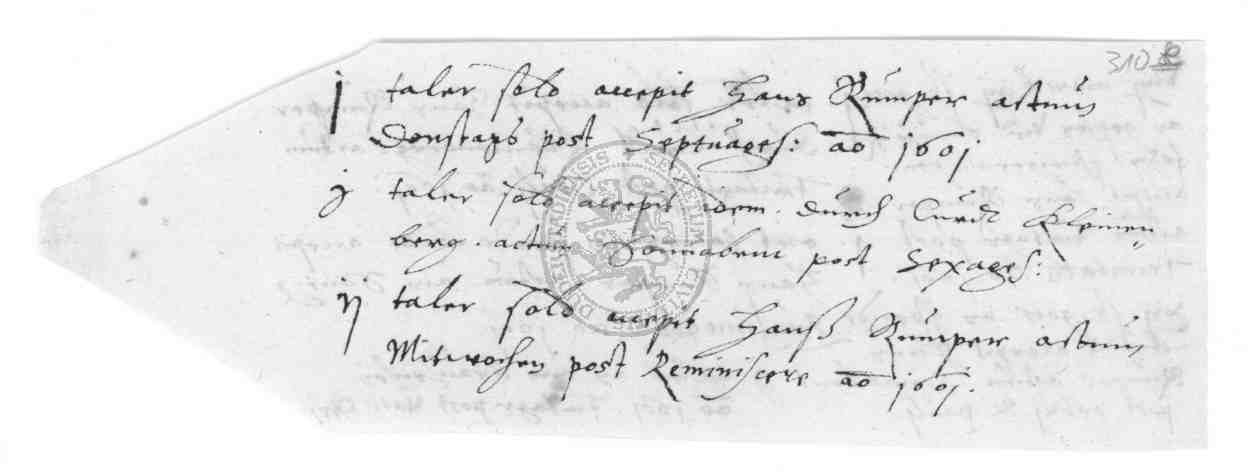 310
j taler sold accepit Hans Rumper actum
Donstags post Septuages: ao 1601
j taler sold accepit idem durch Curdt Kleinen
berg. actum Sonnabent post Sexages:
ij taler sold accepit Hanß Rumper actum
Mitwochen post Reminiscere ao 1601.